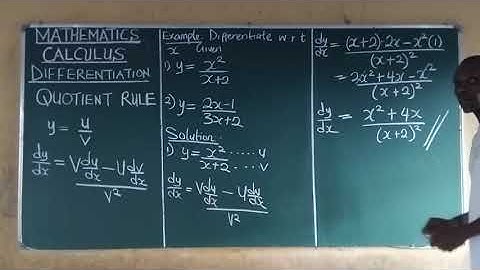 MATHEMATICS
CALCULUS
DIFFERENTIATION
QUOTIENT RULE
y = u/v
dy/dx = (V du/dx - U dv/dx)/V²
Example: Differentiate w r t
x Given
1) y = x²/(x+2)
2) y = (2x-1)/(3x+2)
Solution:
1) y = x²/(x+2) .....u ....v
dy/dx = (V dy/dx - U dy/dx)/V²
dy/dx = ((x+2)·2x - x²(1))/(x+2)²
= (2x²+4x-x²)/(x+2)²
dy/dx = (x²+4x)/(x+2)² //